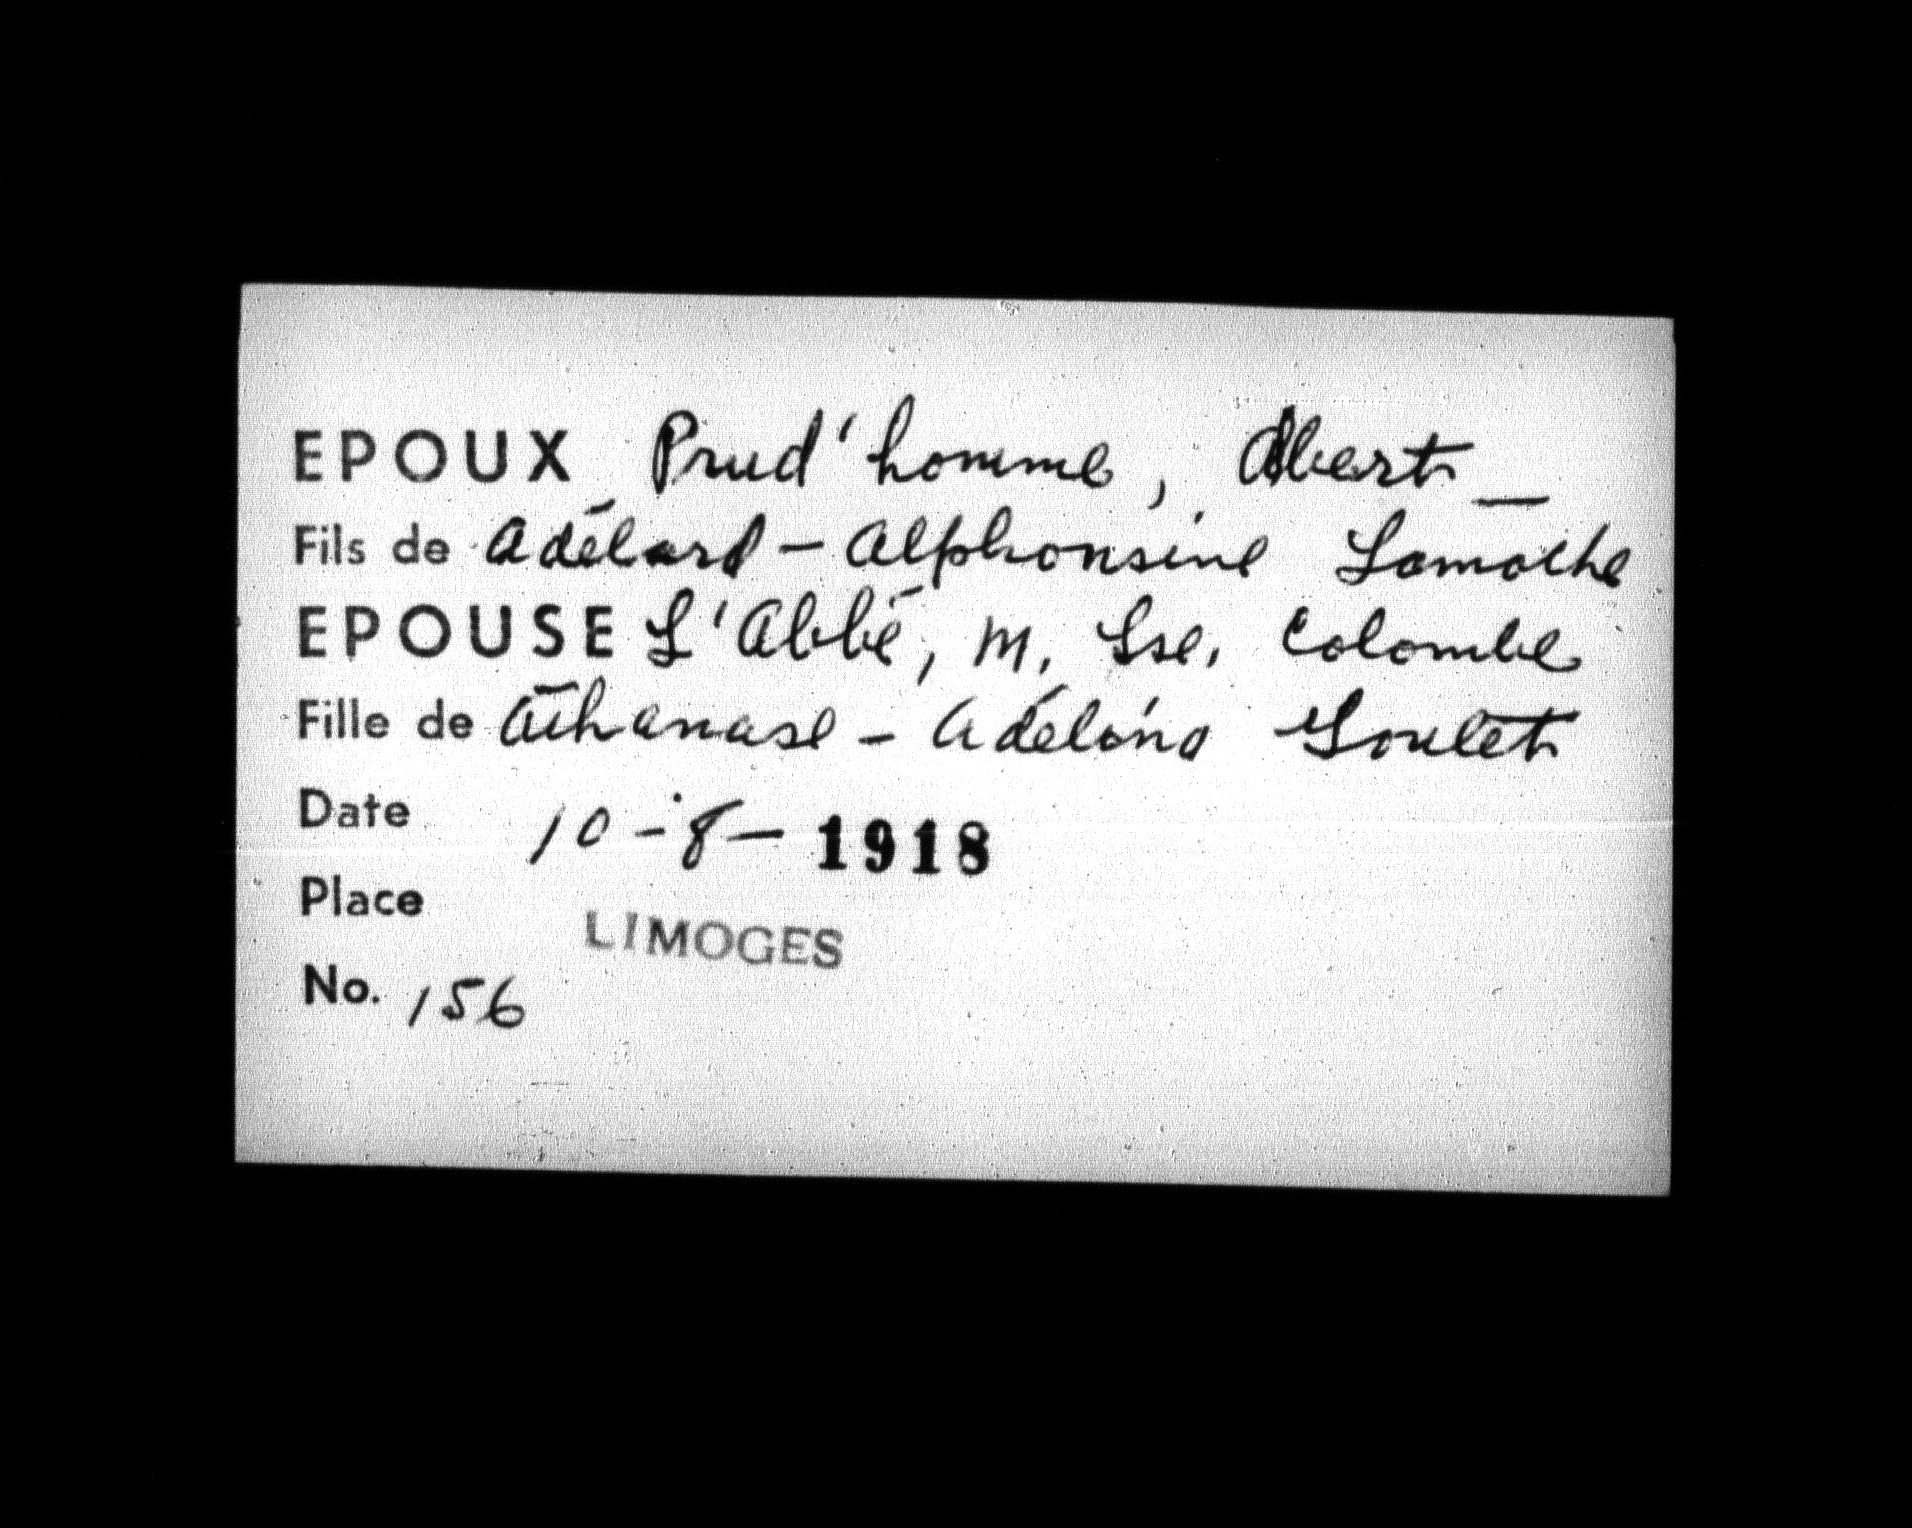 EPOUX Prud'homme, Albert —
Fils de Adélard - Alphonsine Lamoche
EPOUSE L'Abbé, M. Lse. Colombe
Fille de Athanase - Adélina Goulet
Date 10-8-1918
Place LIMOGES
No. 156